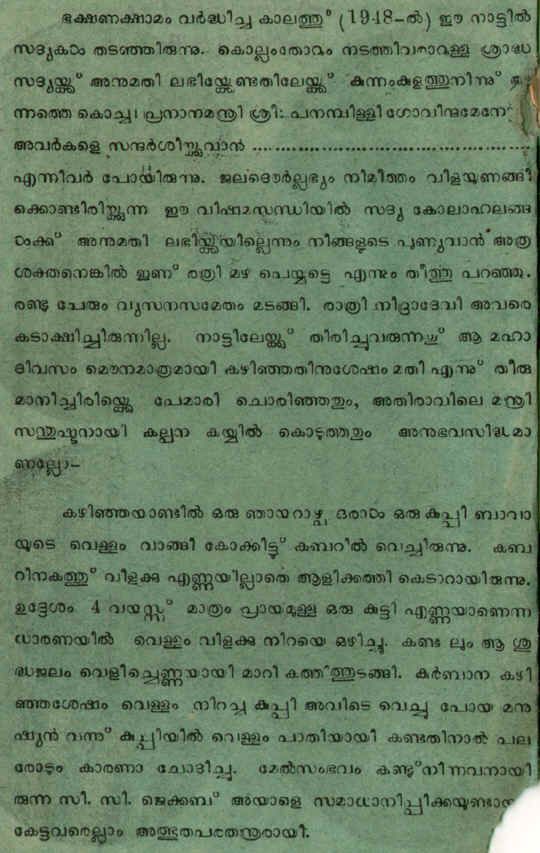 ഭക്ഷണക്ഷാമം വർദ്ധിച്ച കാലത്തു് (1948-ൽ) ഈ നാട്ടിൽ
സദ്യകഠം തടഞ്ഞിരുന്നു. കൊല്ലംതോറും നടത്തിവരാറുള്ള ശ്രാദ്ധ
സദ്യയ്ക്കു് അനുമതി ലഭിയ്ക്കേണ്ടതിലേയ്ക്കു് കുന്നംകുളത്തുനിന്നു്
ന്നത്തെ കൊച്ചി പ്രധാനമന്ത്രി ശ്രീ: പനമ്പിള്ളി ഗോവിന്ദമേനോ
അവർകളെ സന്ദർശിയ്ക്കുവാൻ ..........................................
എന്നിവർ പോയിരുന്നു. ജലദൌർല്ലഭ്യം നിമിത്തം വിളയുണങ്ങി
ക്കൊണ്ടിരിയ്ക്കുന്ന ഈ വിഷമസന്ധിയിൽ സദ്യ കോലാഹലങ്ങ
ഠംക്കു് അനുമതി ലഭിയ്ക്കയില്ലെന്നും നിങ്ങളുടെ പുണ്യവാൻ അത്ര
ശക്തനെങ്കിൽ ഇന്നു് രത്രി മഴ പെയ്യട്ടെ എന്നും തീർത്തു പറഞ്ഞു.
രണ്ടു പേരും വ്യസനസമേതം മടങ്ങി. രാത്രി നിദ്രാദേവി അവരെ
കടാക്ഷിച്ചിരുന്നില്ല. നാട്ടിലേയ്ക്കു് തിരിച്ചുവരുന്നതു് ആ മഹാ
ദിവസം മൌനമാത്രമായി കഴിഞ്ഞതിനുശേഷം മതി എന്നു് തീരു
മാനിച്ചിരിയ്ക്കെ പേമാരി ചൊരിഞ്ഞതും, അതിരാവിലെ മന്ത്രി
സന്തുഷ്ടനായി കല്പന കയ്യിൽ കൊടുത്തതും അനുഭവസിദ്ധമാ
ണല്ലോ-
കഴിഞ്ഞയാണ്ടിൽ ഒരു ഞായറാഴ്ച ഒരാഠം ഒരു കുപ്പി ബാവാ
യുടെ വെള്ളം വാങ്ങി കോക്കിട്ടു് കബറിൽ വെച്ചിരുന്നു. കബ
റിനകത്തു് വിളക്കു എണ്ണയില്ലാതെ ആളിക്കത്തി കെടാറായിരുന്നു.
ഉദ്ദേശം 4 വയസ്സു് മാത്രം പ്രായമുള്ള ഒരു കുട്ടി എണ്ണയാണെന്ന
ധാരണയിൽ വെള്ളം വിളക്കു നിറയെ ഒഴിച്ചു. കണ്ട ലും ആ ശു
ദ്ധജലം വെളിച്ചെണ്ണയായി മാറി കത്തിത്തുടങ്ങി. കുർബാന കഴി
ഞ്ഞശേഷം വെള്ളം നിറച്ച കുപ്പി അവിടെ വെച്ചു പോയ മനു
ഷ്യൻ വന്നു് കുപ്പിയിൽ വെള്ളം പാതിയായി കണ്ടതിനാൽ പല
രോടും കാരണാ ചോദിച്ചു. മേൽസംഭവം കണ്ടുനിന്നവനായി
രുന്ന സി. സി. ജെക്കബു് അയാളെ സമാധാനിപ്പിക്കയുണ്ടായ
കേട്ടവരെല്ലാം അത്ഭുതപരതന്ത്രരായി.